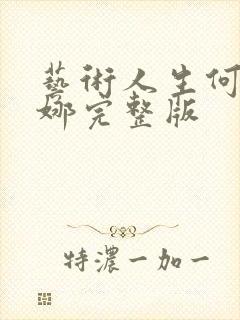 藝術人生何
娜完整版
特濃一加一